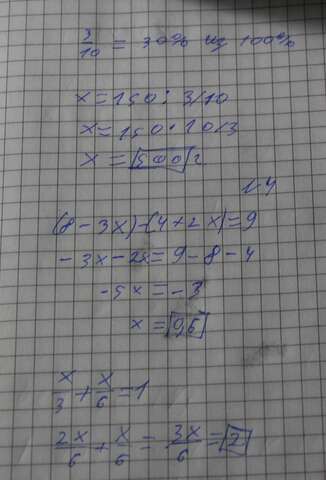 3/10 = 30% из 100%
x = 150 : 3/10
x = 150 · 10/3
x = 500 г
№4
(8 - 3x) - (4 + 2x) = 9
-3x - 2x = 9 - 8 - 4
-5x = -3
x = 0,6
x/3 + x/6 = 1
2x/6 + x/6 = 3x/6 = 2